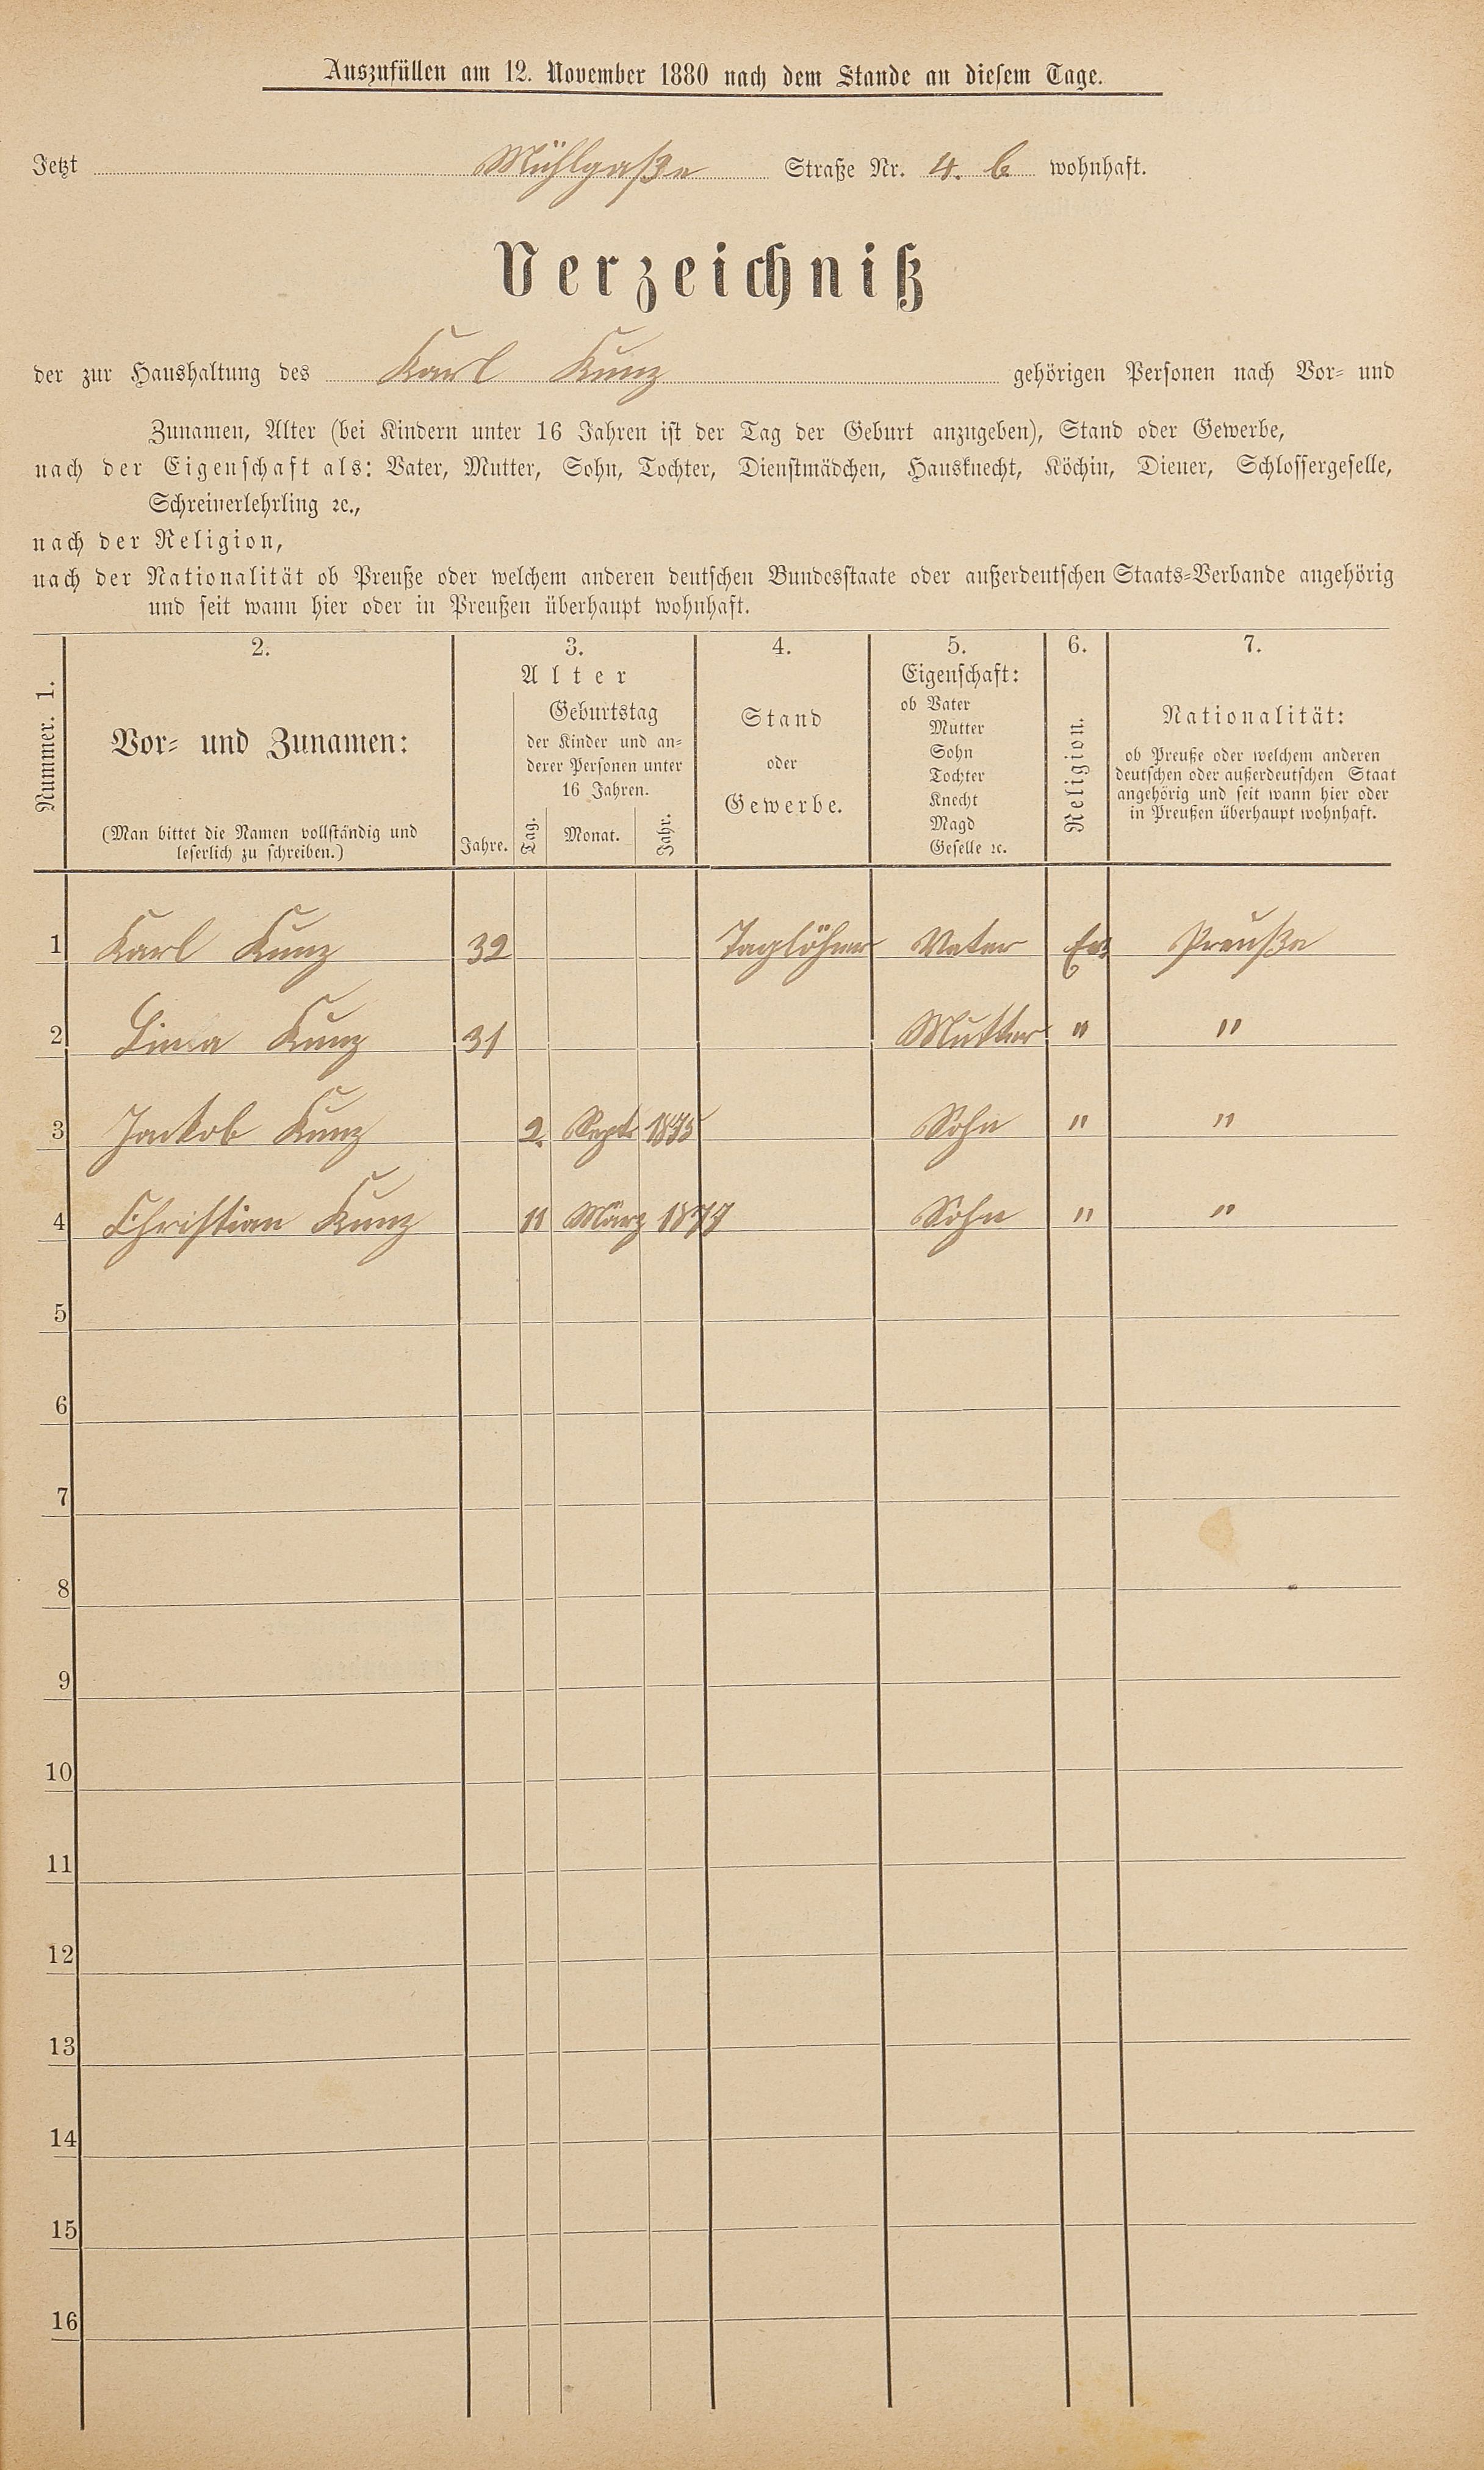 Auszufüllen am 12. November 1880 nach dem Stande an diesem Tage.
Jetzt Mühlgaße Straße Nr. 4. b wohnhaft.
Verzeichniß
der zur Haushaltung des Karl Kunz gehörigen Personen nach Vor- und
Zunamen, Alter (bei Kindern unter 16 Jahren ist der Tag der Geburt anzugeben), Stand oder Gewerbe,
nach der Eigenschaft als: Vater, Mutter, Sohn, Tochter, Dienstmädchen, Hausknecht, Köchin, Diener, Schlossergeselle,
Schreinerlehrling ꝛc.,
nach der Religion,
nach der Nationalität ob Preuße oder welchem anderen deutschen Bundesstaate oder außerdeutschen Staats-Verbande angehörig
und seit wann hier oder in Preußen überhaupt wohnhaft.
Nummer. 1.
2.
Vor- und Zunamen:
(Man bittet die Namen vollständig und
leserlich zu schreiben.)
3.
Alter
Jahre.
Geburtstag
der Kinder und an-
derer Personen unter
16 Jahren.
Tag.
Monat.
Jahr.
4.
Stand
oder
Gewerbe.
5.
Eigenschaft:
ob Vater
Mutter
Sohn
Tochter
Knecht
Magd
Geselle ꝛc.
6.
Religion.
7.
Nationalität:
ob Preuße oder welchem anderen
deutschen oder außerdeutschen Staat
angehörig und seit wann hier oder
in Preußen überhaupt wohnhaft.
1 Karl Kunz 32 Taglöhner Vater Ev Preuße
2 Kunz 31 Mutter " "
3 Jackob Kunz 2. Sept. 1875 Sohn " "
4 Christian Kunz 11 März 1877 Sohn " "
5
6
7
8
9
10
11
12
13
14
15
16